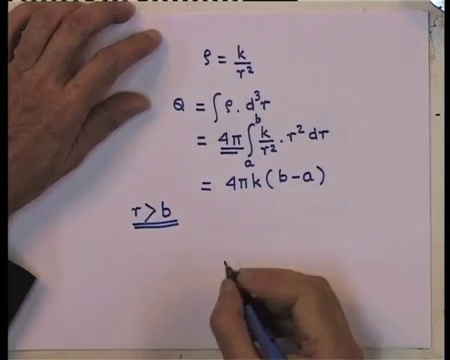 ρ = k/r²
Q = ∫ ρ. d³r
= 4π ∫ₐᵇ k/r² . r² dr
= 4πk(b-a)
r > b